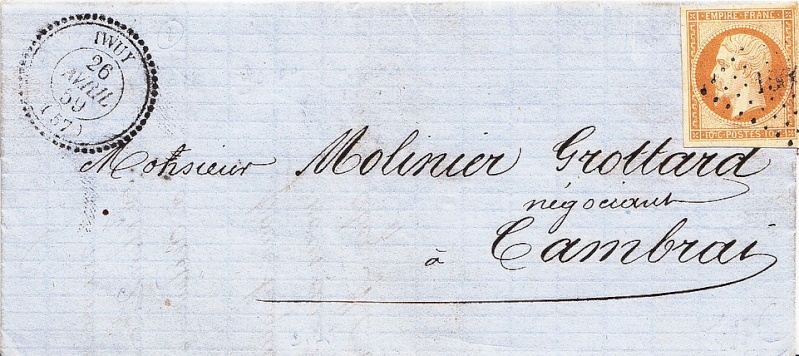 IWUY
26
AVRIL
59
(57)
EMPIRE FRANC.
10 C. POSTES 10 C.
Monsieur Molinier Grottard
négociant
à Cambrai